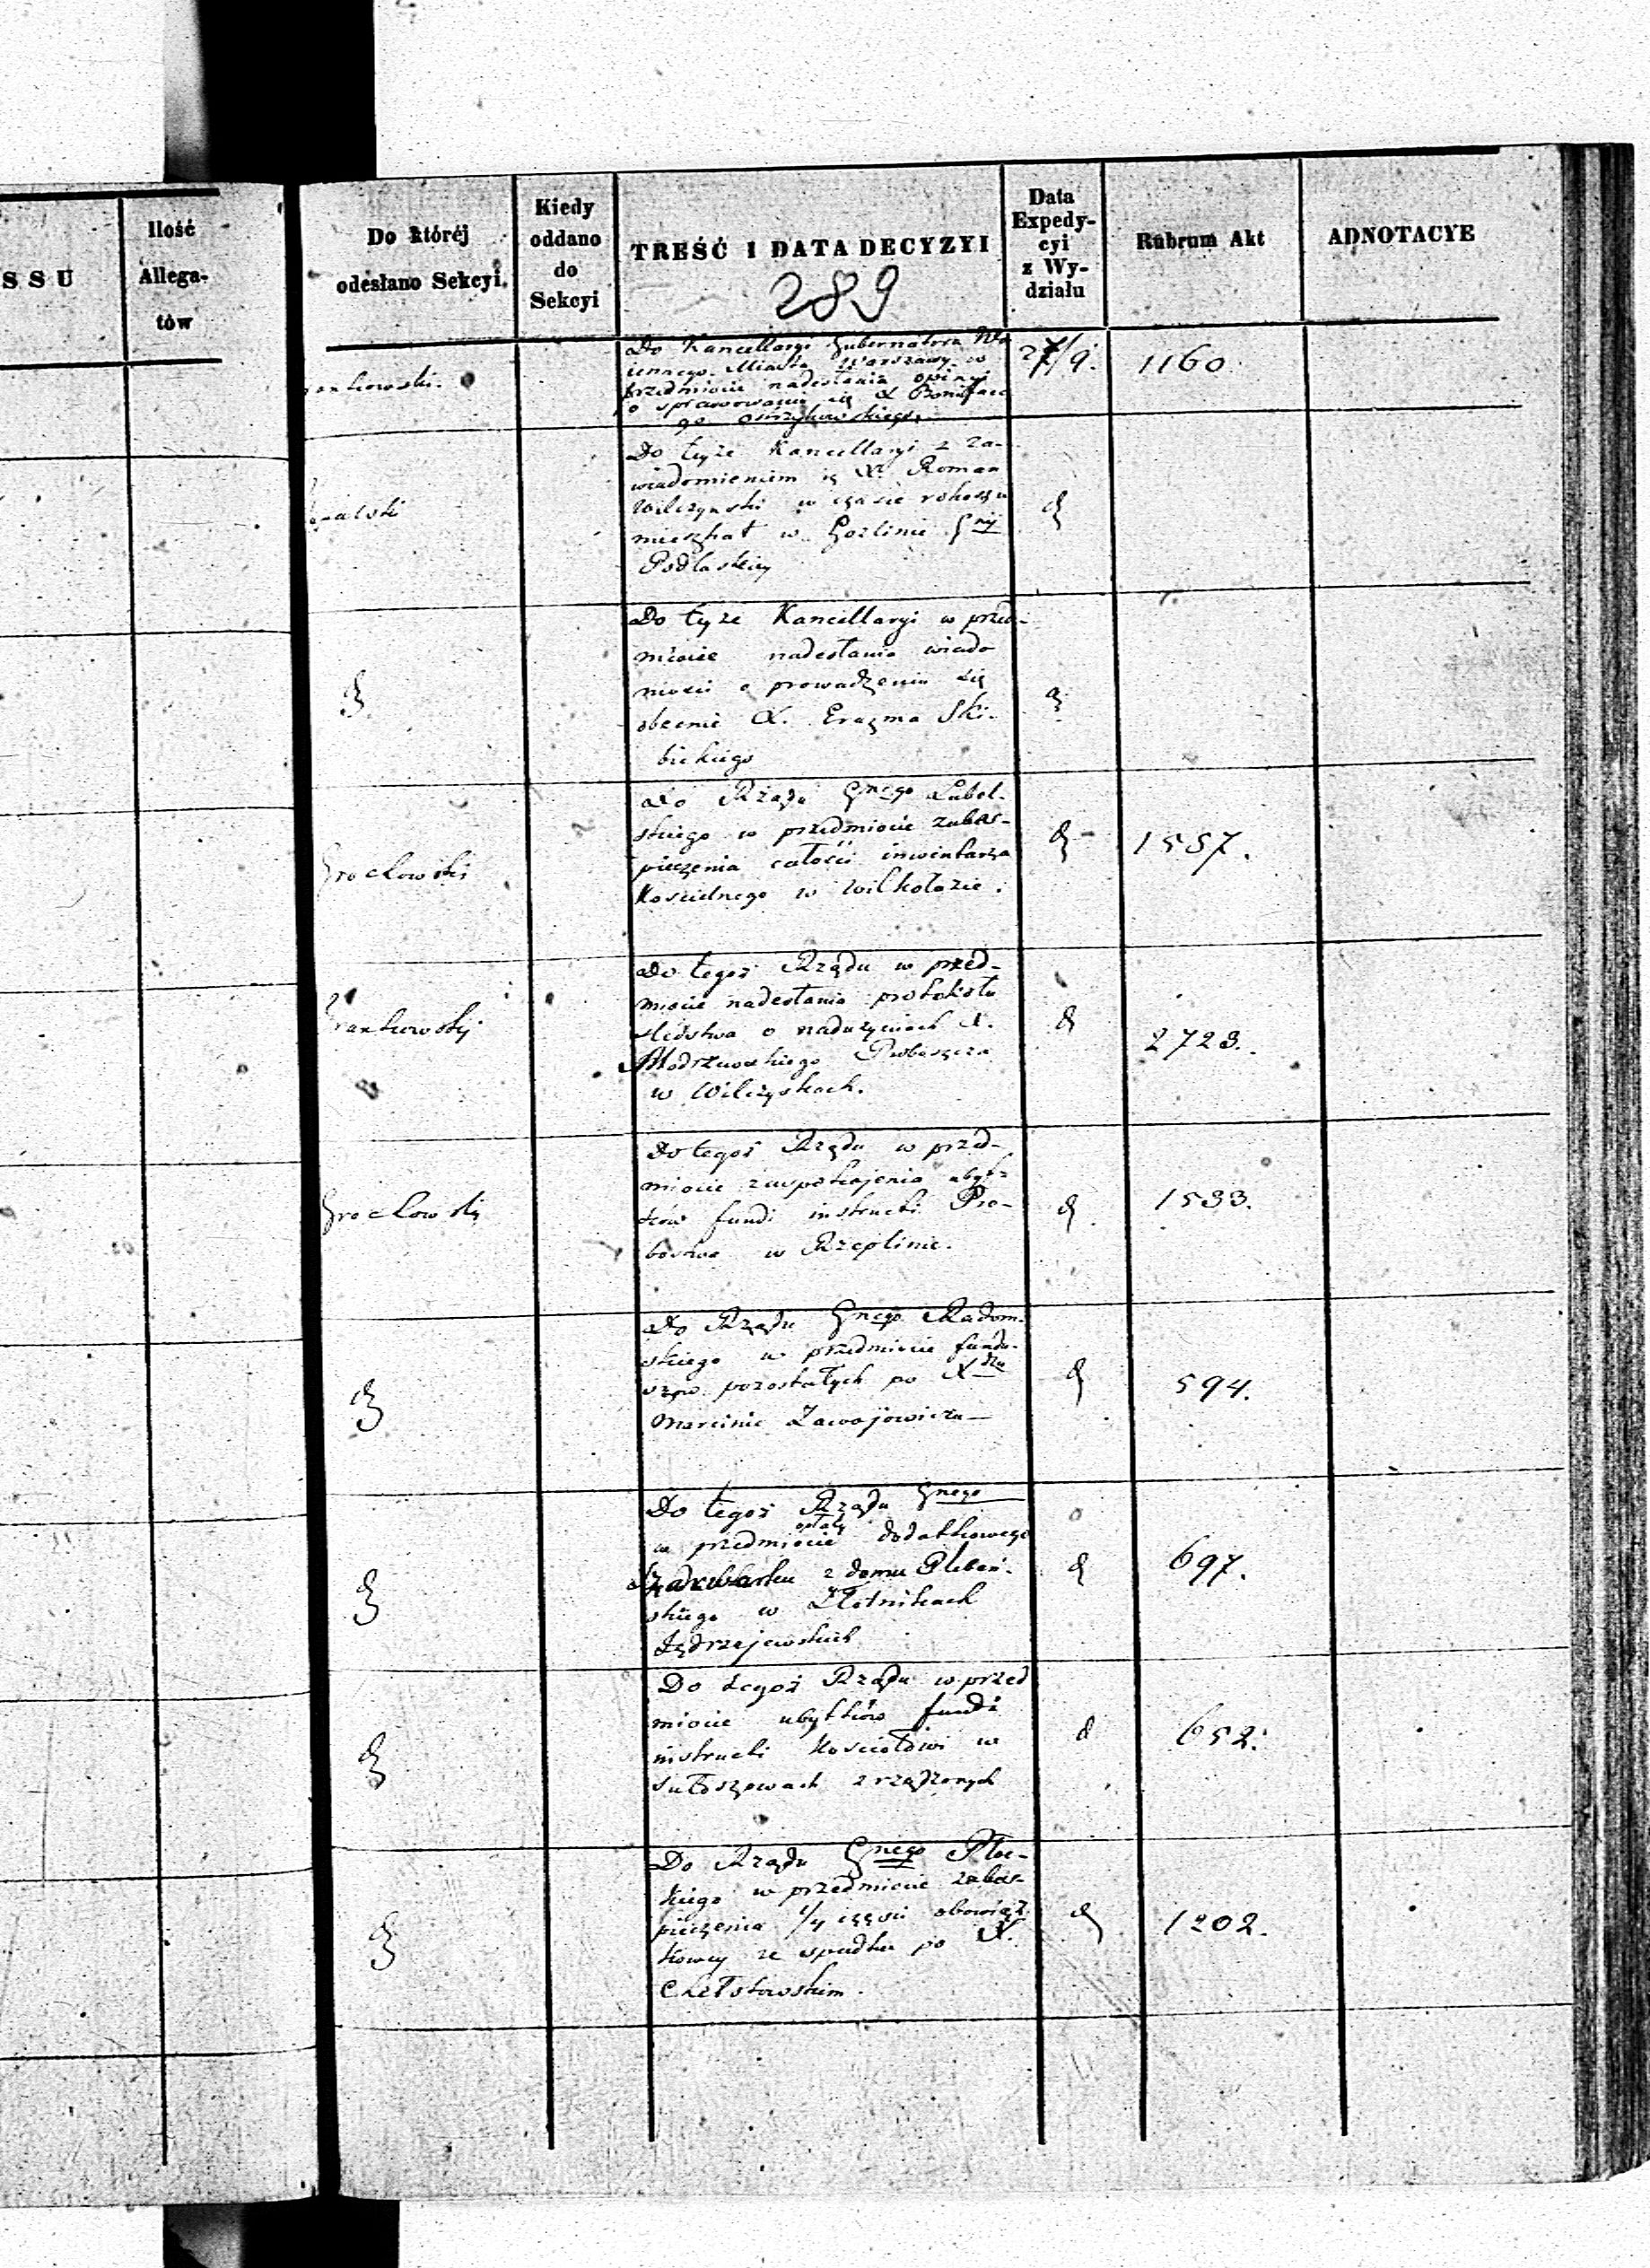 SSU
Ilość
Allega-
tów
Do któréj
odesłano Sekcyi.
Kiedy
oddano
do
Sekcyi
TREŚĆ I DATA DECYZYI
289
Data
Expedy-
cyi
z Wy-
działu
Rubrum Akt
ADNOTACYE
Do Kancellaryi Gubernatora Wo
iennego Miasta Warszawy w
przedmiocie nadesłania opinii
o sprawowaniu się X Boniface
go Ostrzykowskiego
27/9.
1160
Do teyże Kancellaryi z za-
wiadomieniem iż X. Roman
Wilczynski w czasie rokoszu
mieszkał w Gozlinie Gnij
Podlaskiey
Do teyże Kancellaryi w przed-
miocie nadesłania wiado
mości o prowadzeniu się
obecnie X. Erazma Ski-
bickiego
Grochowski
Do Rządu Gnego Lubel-
skiego w przedmiocie zabes-
pieczenia całości inwentarza
Kościelnego w Wilkołazie.
1557.
Do tegoż Rządu w przed-
miocie nadesłania protokółu
śledstwa o nadużyciach X.
Modrzewskiego Proboszcza
w Wilczyskach.
2723.
Grochowski
Do tegoż Rządu w przed-
miocie zaspokojenia ubyt-
ków fundi instructi Pro-
bostwa w Rzeplinie.
1533.
Do Rządu Gnego Radom-
skiego w przedmiocie fundu-
szów pozostałych po Xdzu
Marcinie Zawojowiczu
594.
Do tegoż Rządu Gnego
w przedmiocie opłaty dodatkowego
Szarwarku z domu Plebań-
skiego w Złotnikach
Jędrzejewskich
697.
Do tegoż Rządu w przed
miocie ubytków fundi
instructi Kościołowi w
Sułoszowach zrządzonych
652.
Do Rządu Gnego Płoc-
kiego w przedmiocie zabes-
pieczenia 1/4 części obowiąz
kowey ze spadku po X.
Chełstowskim.
1202.